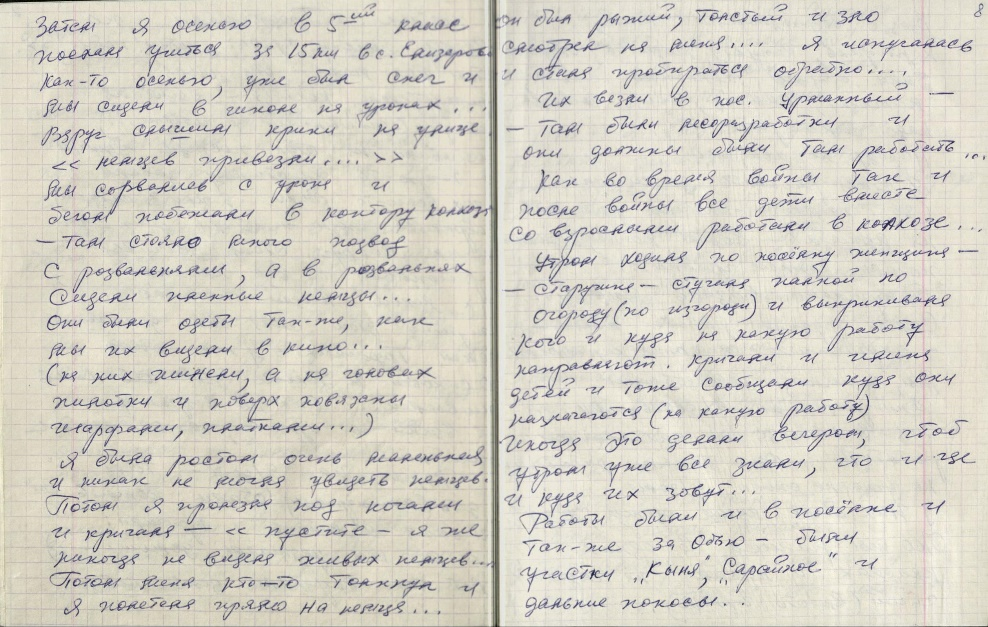 Затем я осенью в 5ый класс
поехала учиться за 15 км в с. Елизарово
Как-то осенью, уже был снег и
мы сидели в школе на уроках...
Вдруг слышим крики на улице
<< немцев привезли.... >>
Мы сорвались с урока и
бегом побежали в контору колхоза
— Там стояло много подвод
с розвальнями, а в розвальнях
сидели пленные немцы...
Они были одеты так-же, как
мы их видели в кино...
(на них шинели, а на головах
пилотки и поверх повязаны
шарфами, платками...)
Я была ростом очень маленькая
и никак не могла увидеть немцев.
Потом я пролезла под ногами
и кричала — << пустите – я же
никогда не видела живых немцев...
Потом меня кто-то толкнул и
я полетела прямо на немца...
8
он был рыжий, толстый и зло
смотрел на меня.... Я испугалась
и стала пробираться обратно....
Их везли в пос. Урманный —
— Там были лесоразработки и
они должны были там работать...
Как во время войны так и
после войны все дети вместе
со взрослыми работали в колхозе...
Утром ходила по посёлку женщина —
— старушка – стучала палкой по
огороду (по изгороди) и выкрикивала
кого и куда на какую работу
направляют. Кричали и имена
детей и тоже сообщали куда они
назначаются (на какую работу)
Иногда это делали вечером, чтоб
утром уже все знали, что и где
и куда их зовут...
Работы были и в посёлке и
так-же за Обью – были
участки „Кыня", „Сарайное" и
дальние покосы...